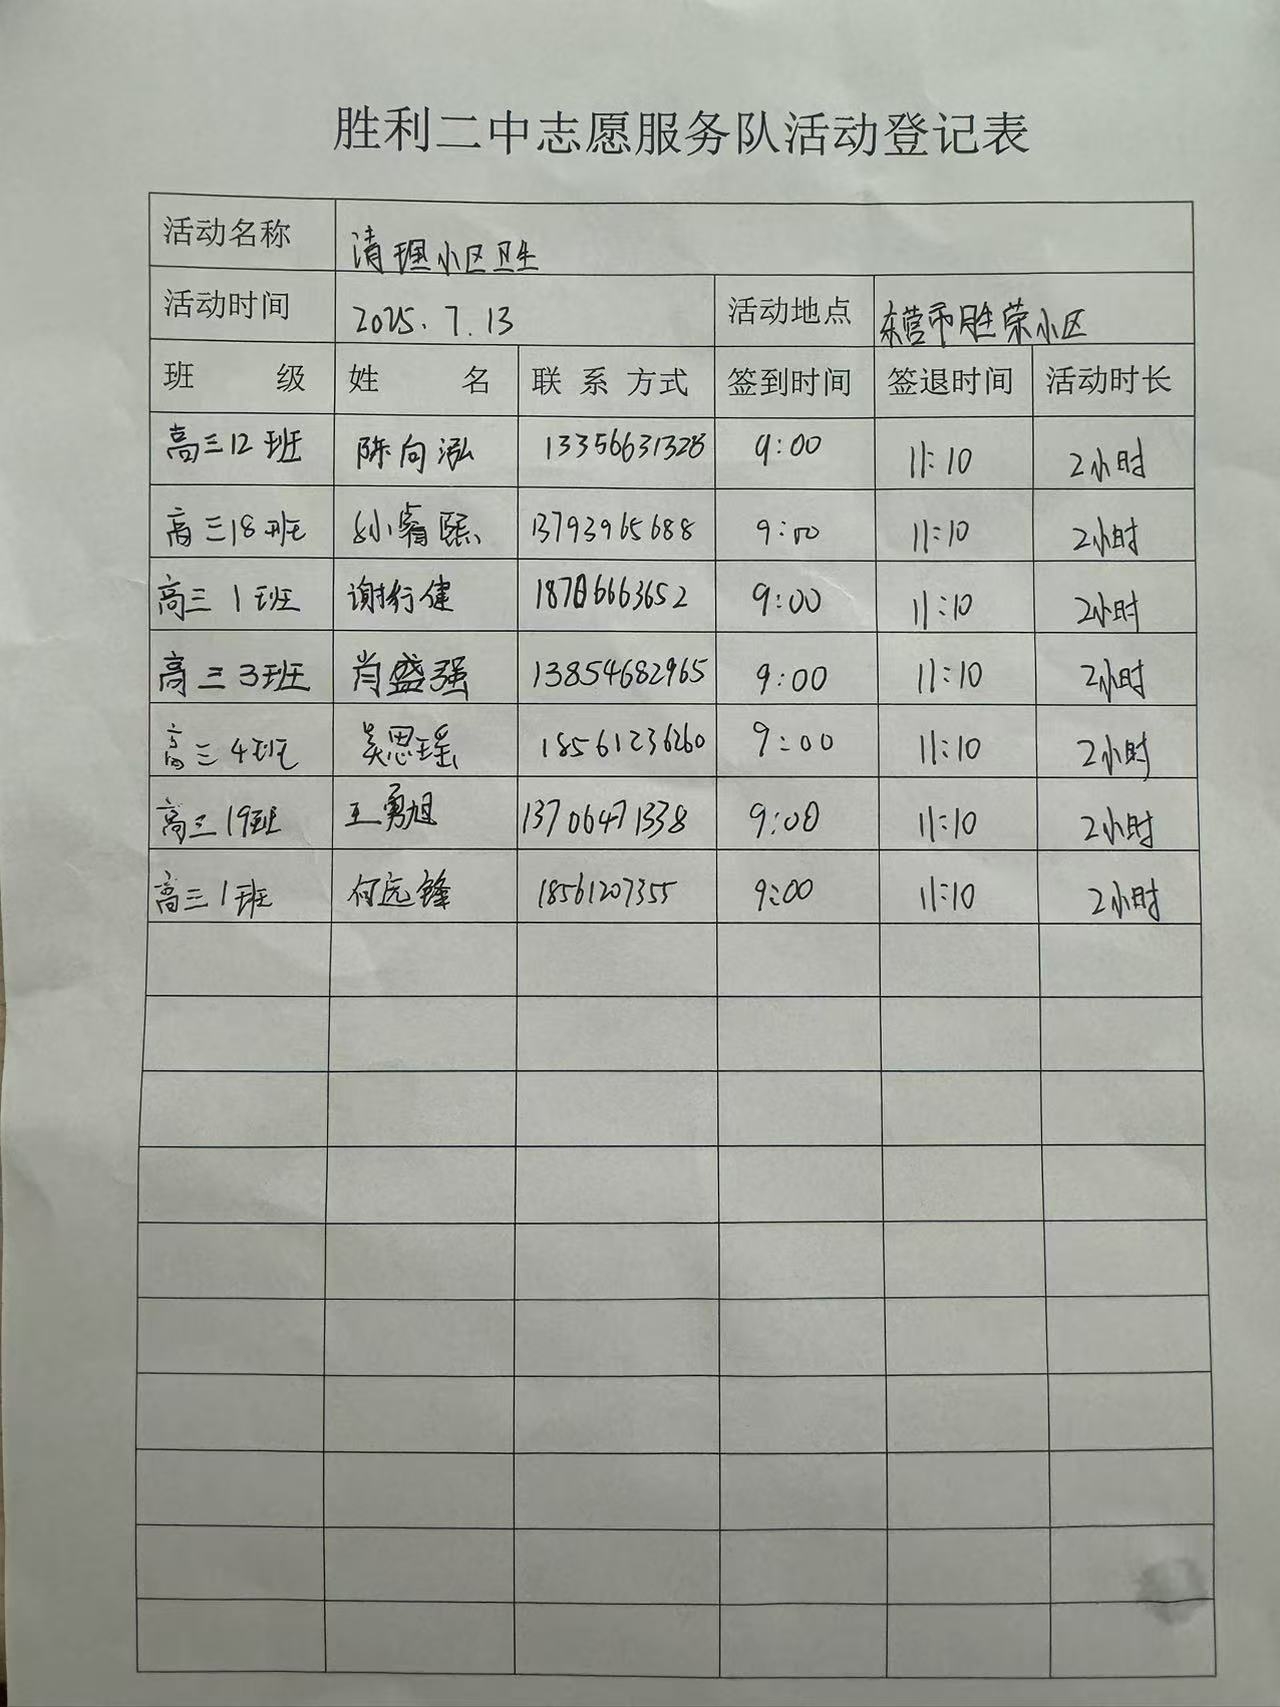 胜利二中志愿服务队活动登记表
活动名称 清理小区卫生
活动时间 2025.7.13 活动地点 东营市胜荣小区
班 级 姓 名 联 系 方式 签到时间 签退时间 活动时长
高三12班 陈向泓 13356631328 9:00 11:10 2小时
高三18班 孙睿熙 13793965688 9:00 11:10 2小时
高三1班 谢行健 9:00 11:10 2小时
高三3班 肖盛强 13854682965 9:00 11:10 2小时
高三4班 吴思瑶 18561236260 9:00 11:10 2小时
高三19班 王勇旭 13706471338 9:00 11:10 2小时
高三1班 何远锋 18561207355 9:00 11:10 2小时